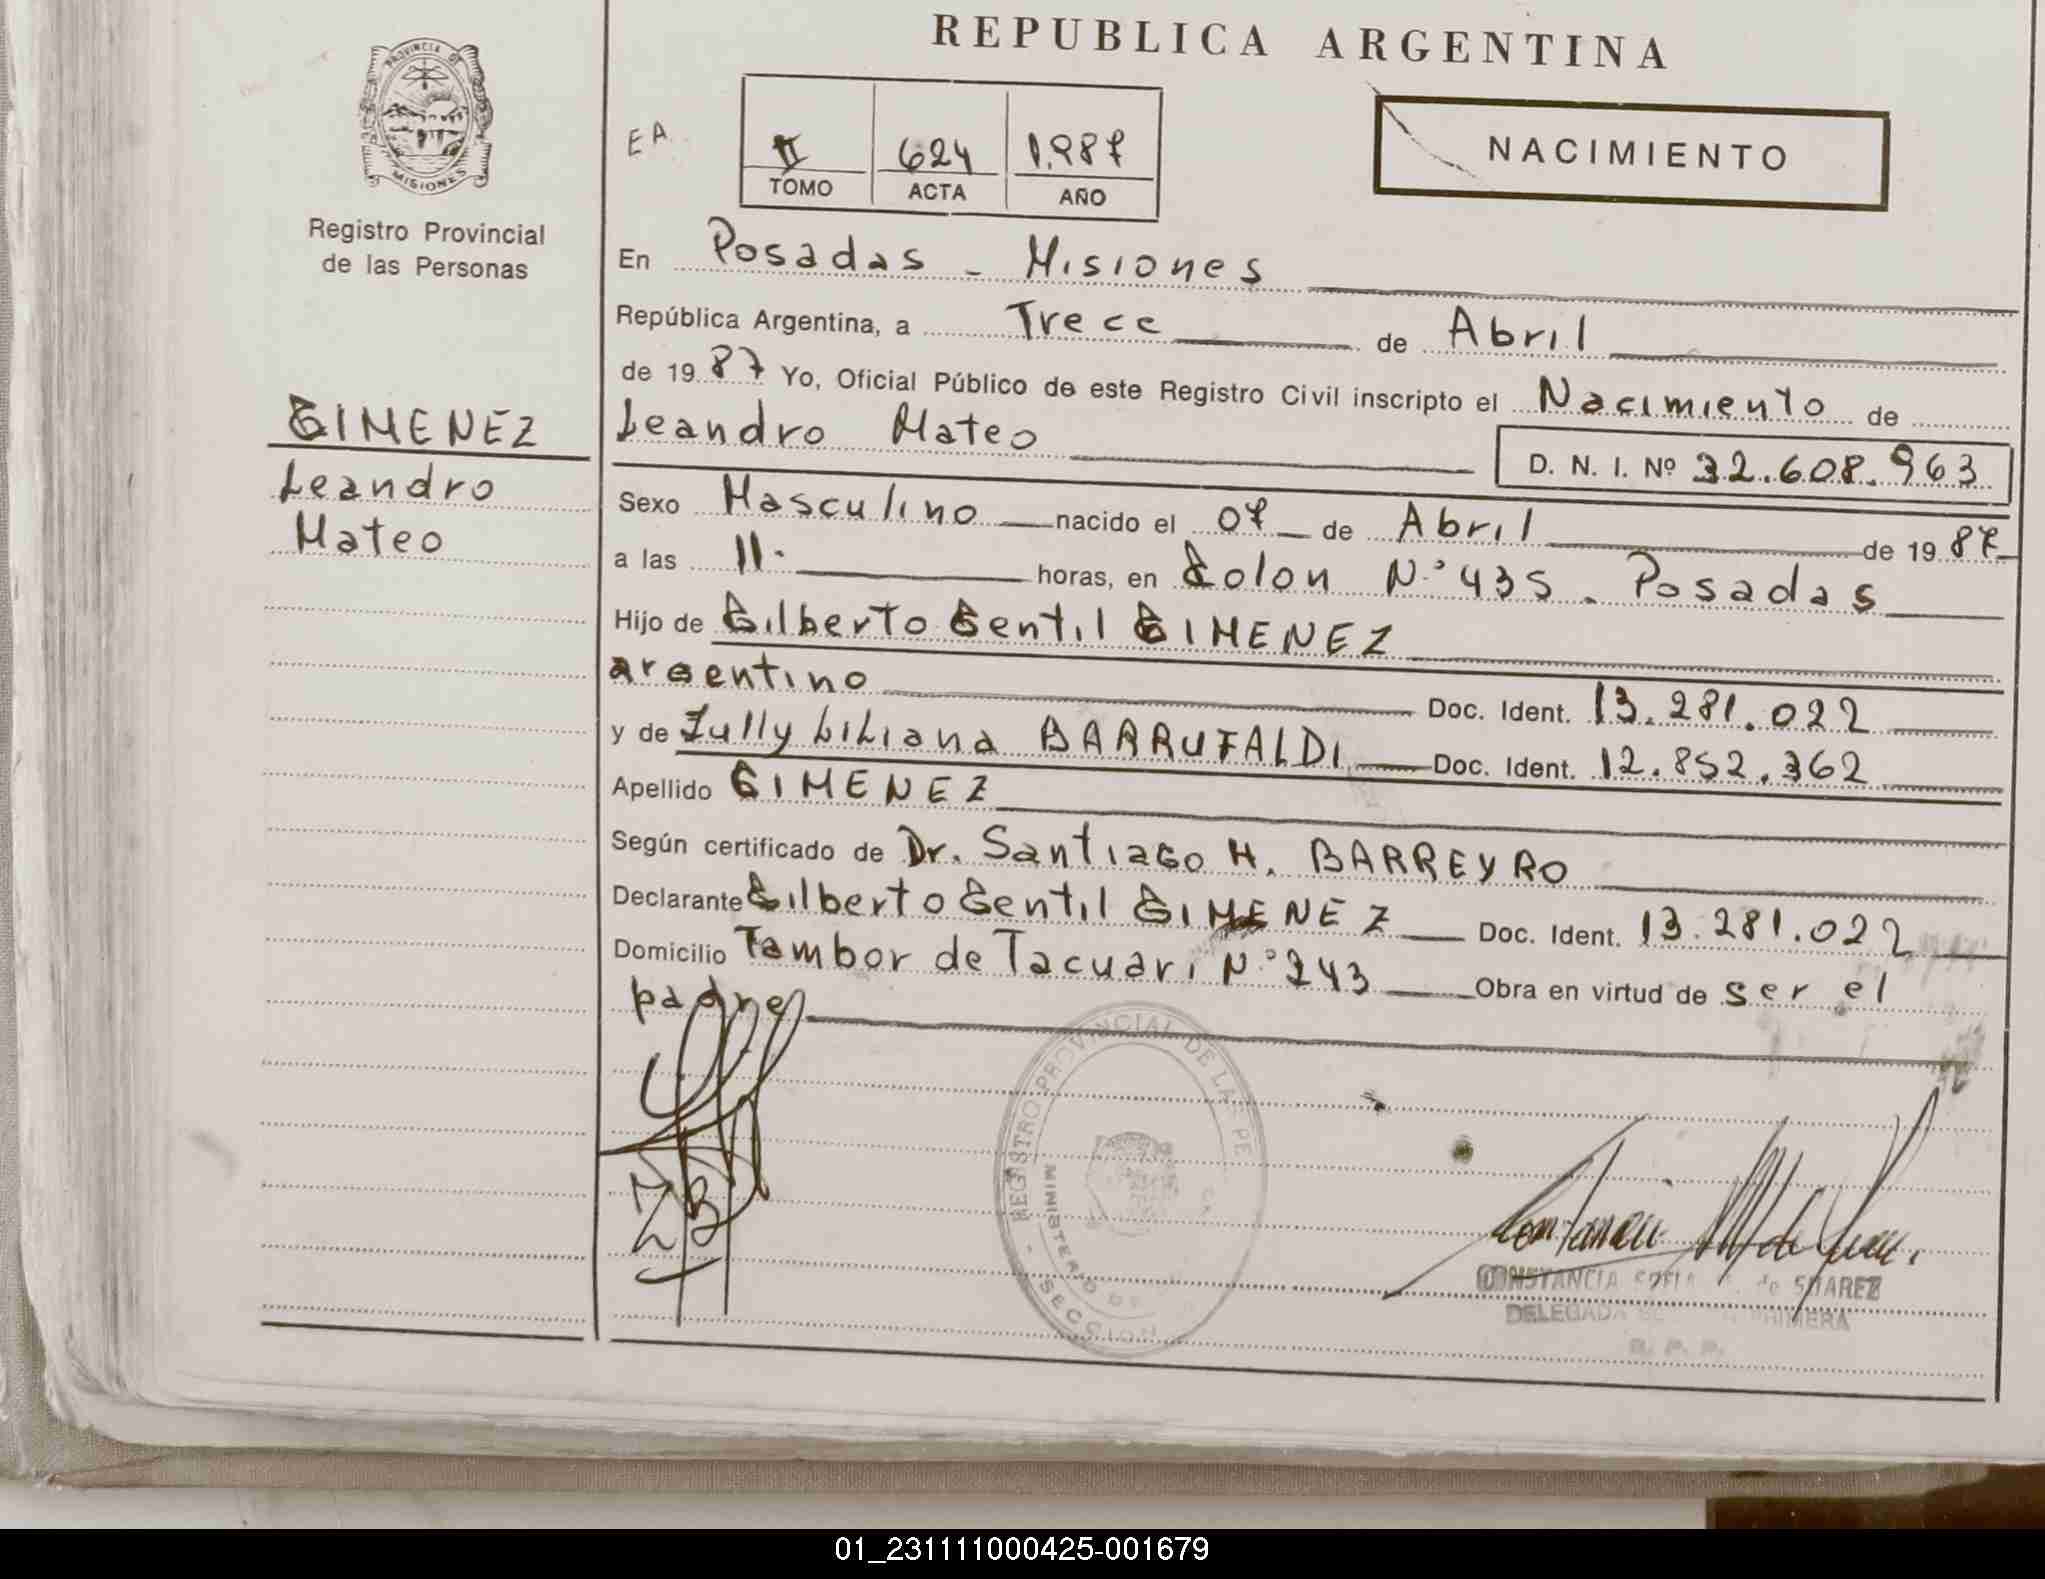 REPUBLICA ARGENTINA
PROVINCIA DE
MISIONES
Registro Provincial
de las Personas
EA
II 624 1.987
TOMO ACTA AÑO
NACIMIENTO
En Posadas - Misiones
República Argentina, a Trece de Abril
de 1987 Yo, Oficial Público de este Registro Civil inscripto el Nacimiento de
GIMENEZ
Leandro
Mateo
Leandro Mateo
D. N. I. Nº 32.608.963
Sexo Masculino nacido el 07 de Abril de 1987
a las 11. horas, en Colon N.º 435. Posadas
Hijo de Gilberto Gentil GIMENEZ
argentino Doc. Ident. 13.281.022
y de Zully Liliana BARRUFALDI Doc. Ident. 12.852.362
Apellido GIMENEZ
Según certificado de Dr. Santiago H. BARREYRO
Declarante Gilberto Gentil GIMENEZ Doc. Ident. 13.281.022
Domicilio Tambor de Tacuari N.º 243 Obra en virtud de ser el
padre
REGISTRO PROVINCIAL DE LAS PE
MINISTERIO DE
SECCION
ZB
CONSTANCIA SOFIA de SUAREZ
DELEGADA PRIMERA
R. P. P.
01_231111000425-001679